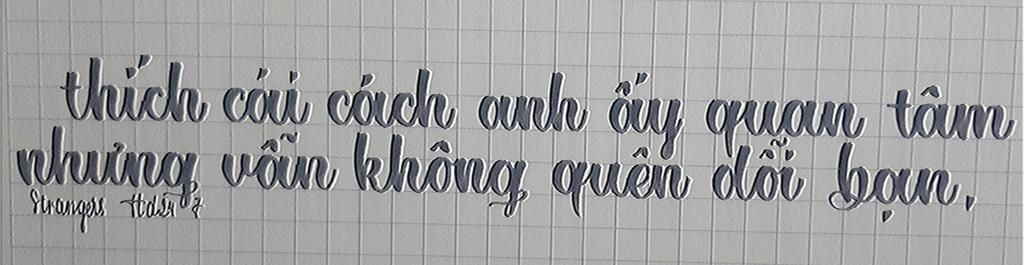 thích cái cách anh ấy quan tâm
nhưng vẫn không quên dỗi bạn.
Strangers